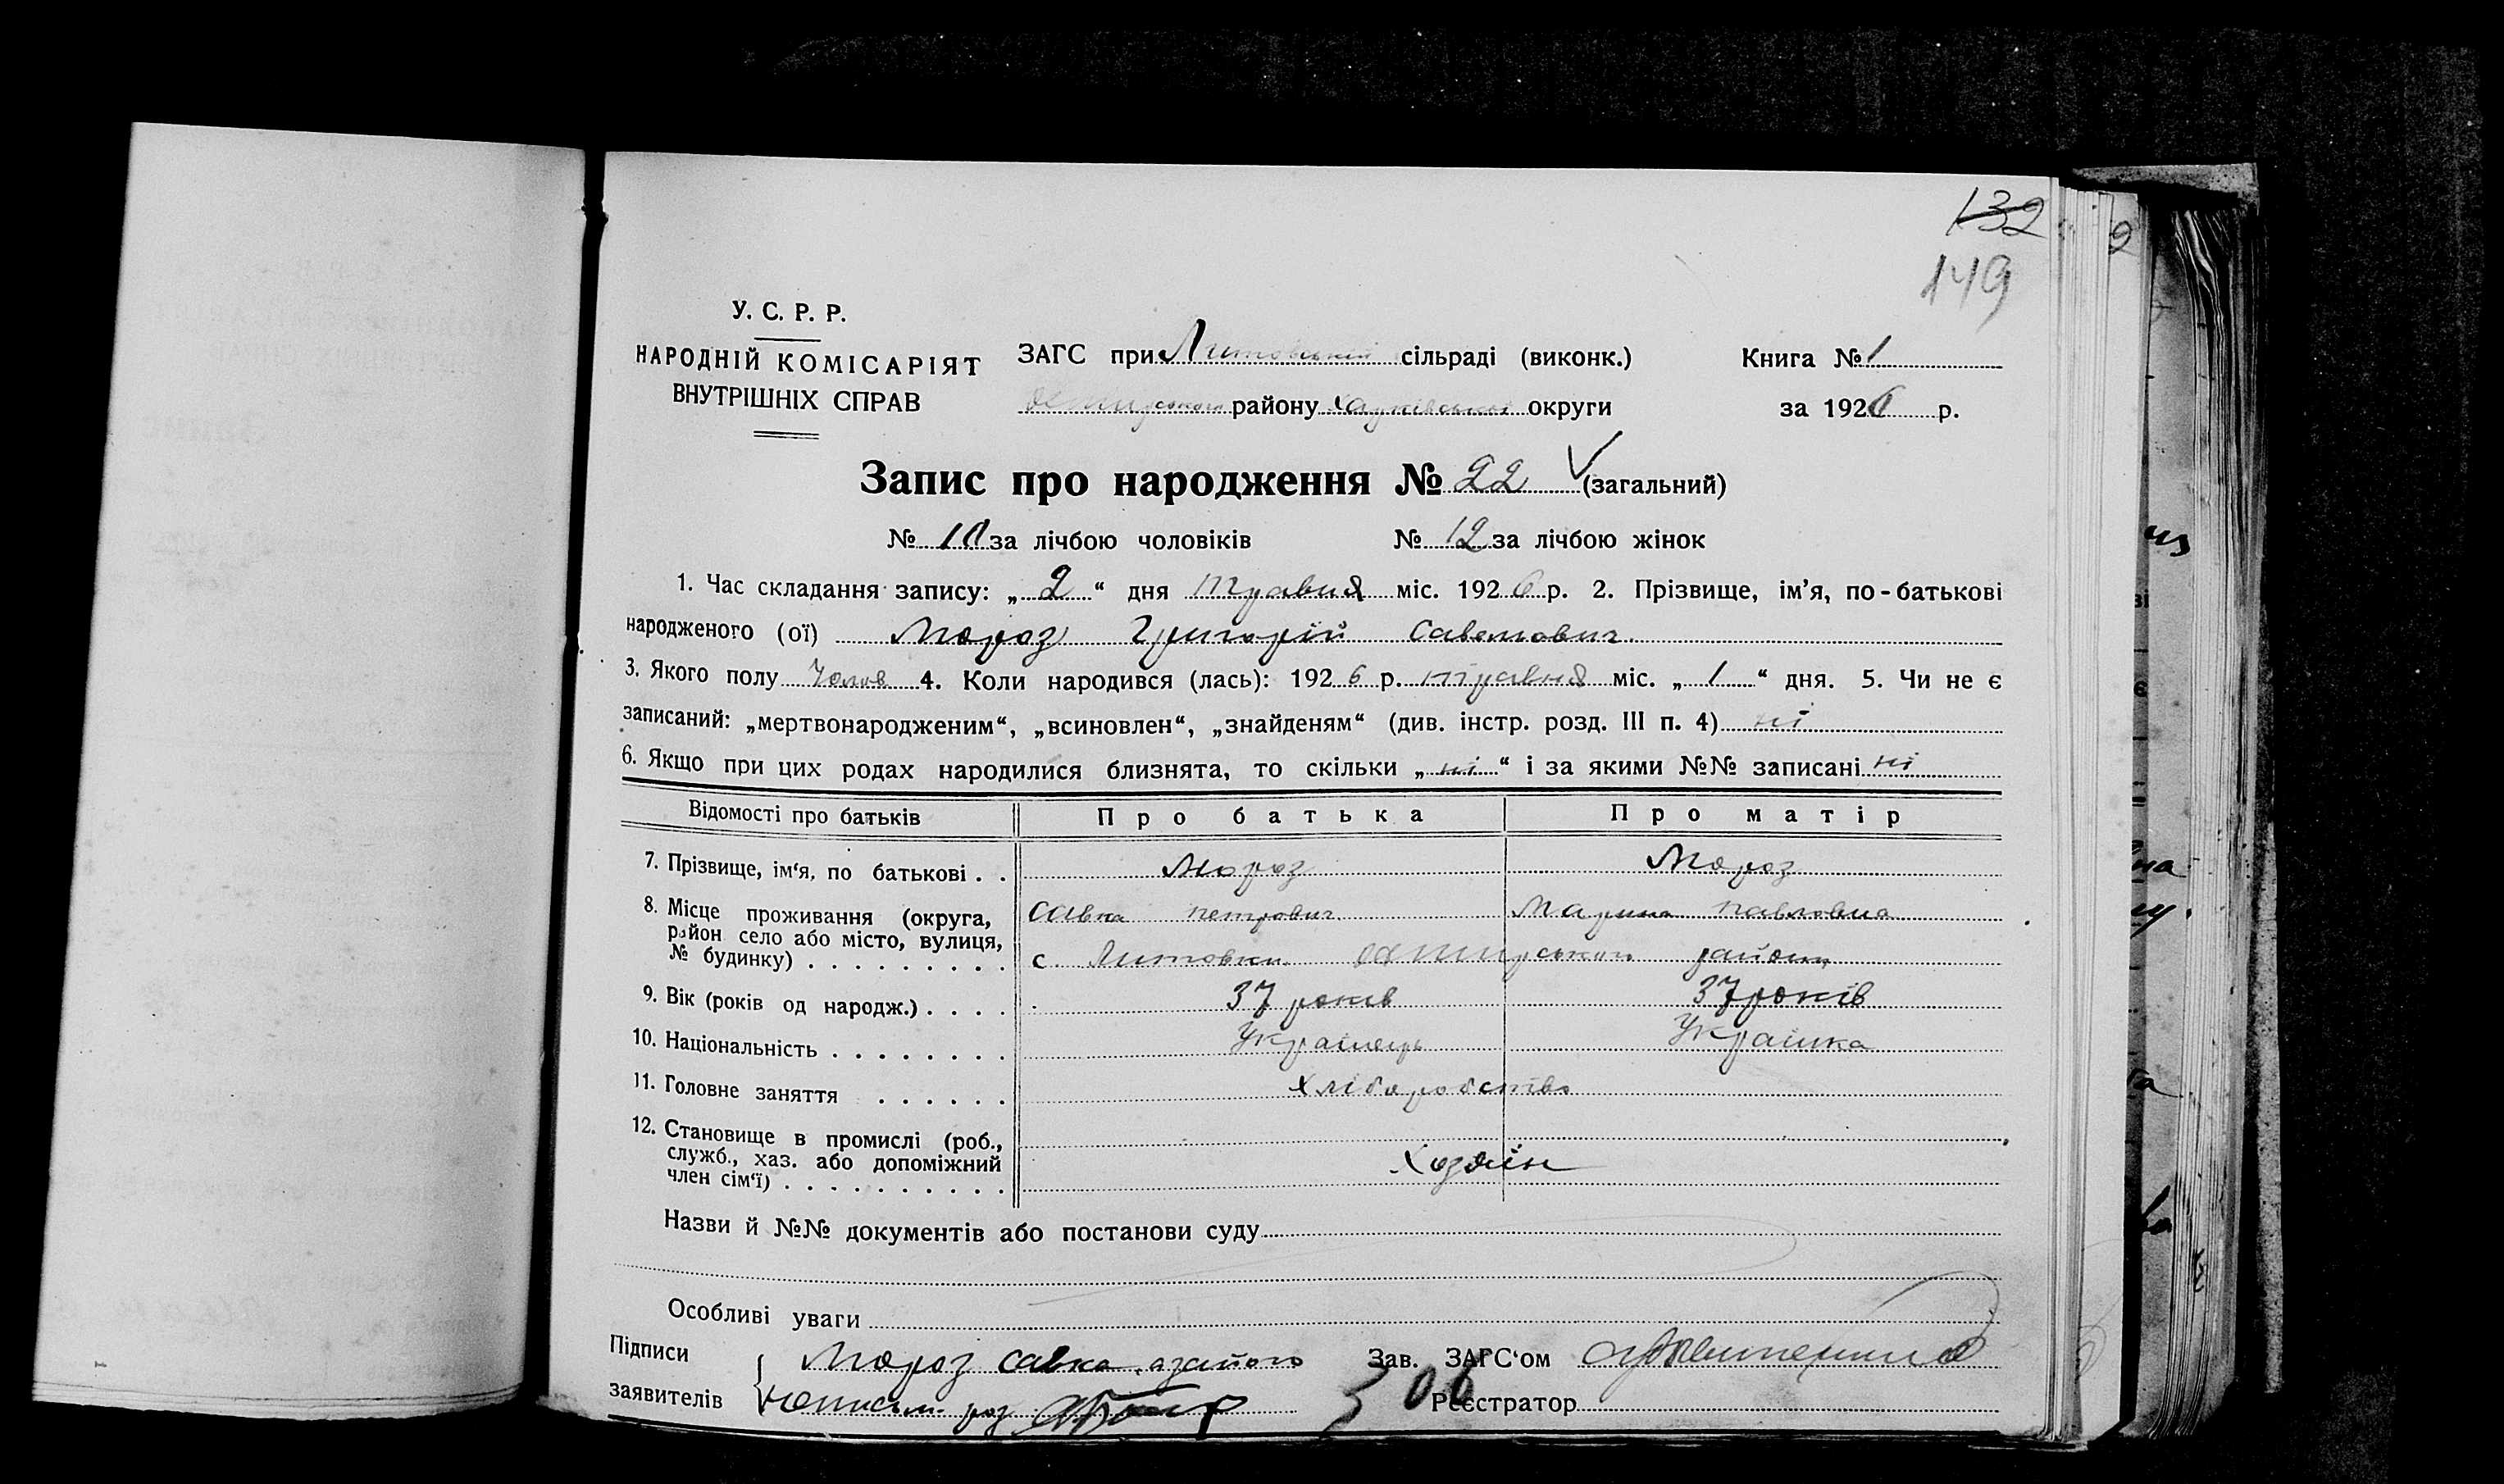 132
149
У. С. Р. Р.
НАРОДНІЙ КОМІСАРІЯТ
ВНУТРІШНІХ СПРАВ
ЗАГС при сільраді (виконк.)
району Харківської округи
Книга № 1
за 1926 р.
Запис про народження № 22 (загальний)
№ 10 за лічбою чоловіків № 12 за лічбою жінок
1. Час складання запису: „ 2 “ дня травня міс. 1926 р. 2. Прізвище, ім’я, по-батькові
народженого (ої) Мороз Григорій Савелович
3. Якого полу Чолов 4. Коли народився (лась): 1926 р. травня міс. „ 1 “ дня. 5. Чи не є
записаний: „мертвонародженим“, „всиновлен“, „знайденям“ (див. інстр. розд. III п. 4) ні
6. Якщо при цих родах народилися близнята, то скільки „ ні “ і за якими №№ записані ні
Відомості про батьків Про батька Про матір
7. Прізвище, ім‘я, по батькові . . Мороз Мороз
8. Місце проживання (округа, Савка петрович Марина павловна
район село або місто, вулиця,
№ будинку) . . . . . . . . . с. Литовки району
9. Вік (років од народж.) . . . . 37 років 37 років
10. Національність . . . . . . . . Українець Українка
11. Головне заняття . . . . . . хліборобство
12. Становище в промислі (роб.,
служб., хаз. або допоміжний Хозяїн
член сім‘ї) . . . . . . . . . .
Назви й №№ документів або постанови суду
Особливі уваги
Підписи Мороз Савка азайого Зав. ЗАГС‘ом
заявителів неписьм. роз 306 Реєстратор